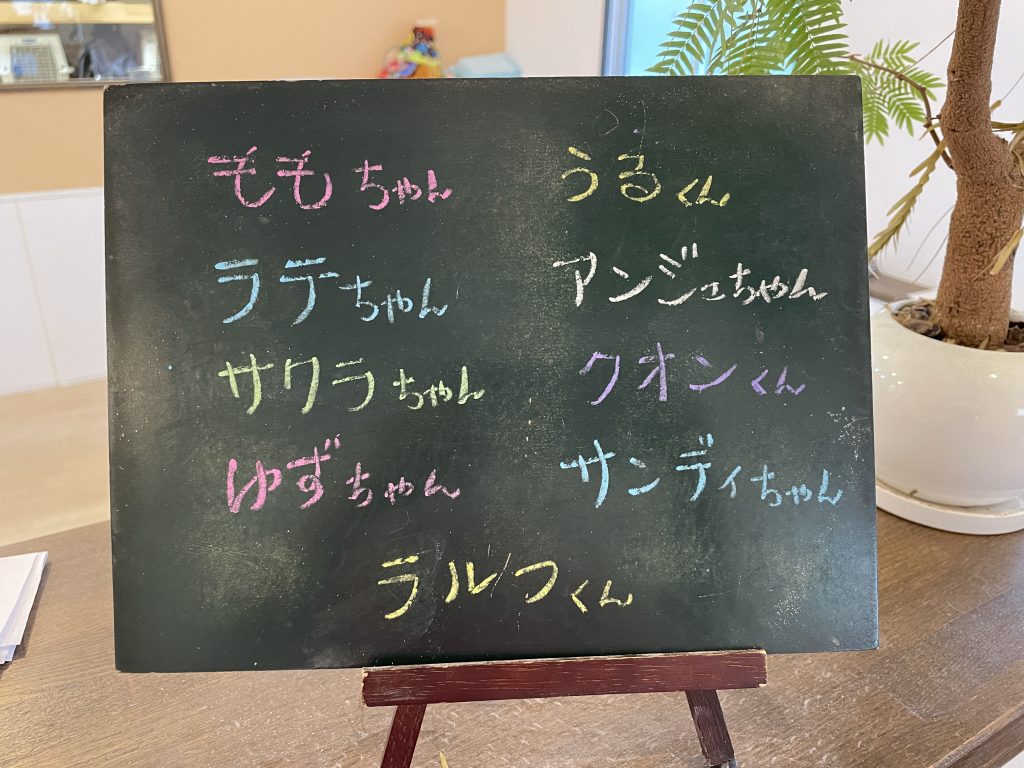 ももちゃん
うるくん
ラテちゃん
アンジュちゃん
サクラちゃん
クオンくん
ゆずちゃん
サンディちゃん
ラルフくん